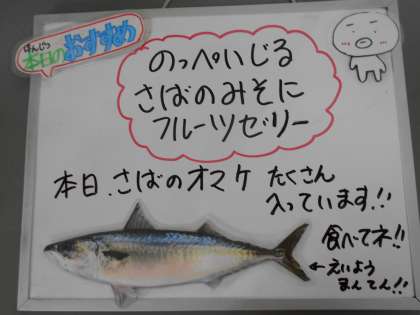 ほんじつ
本日のおすすめ
のっぺいじる
さばのみそに
フルーツゼリー
本日、さばのオマケ たくさん
入っています!!
食べてネ!!
←えいよう
まんてん!!